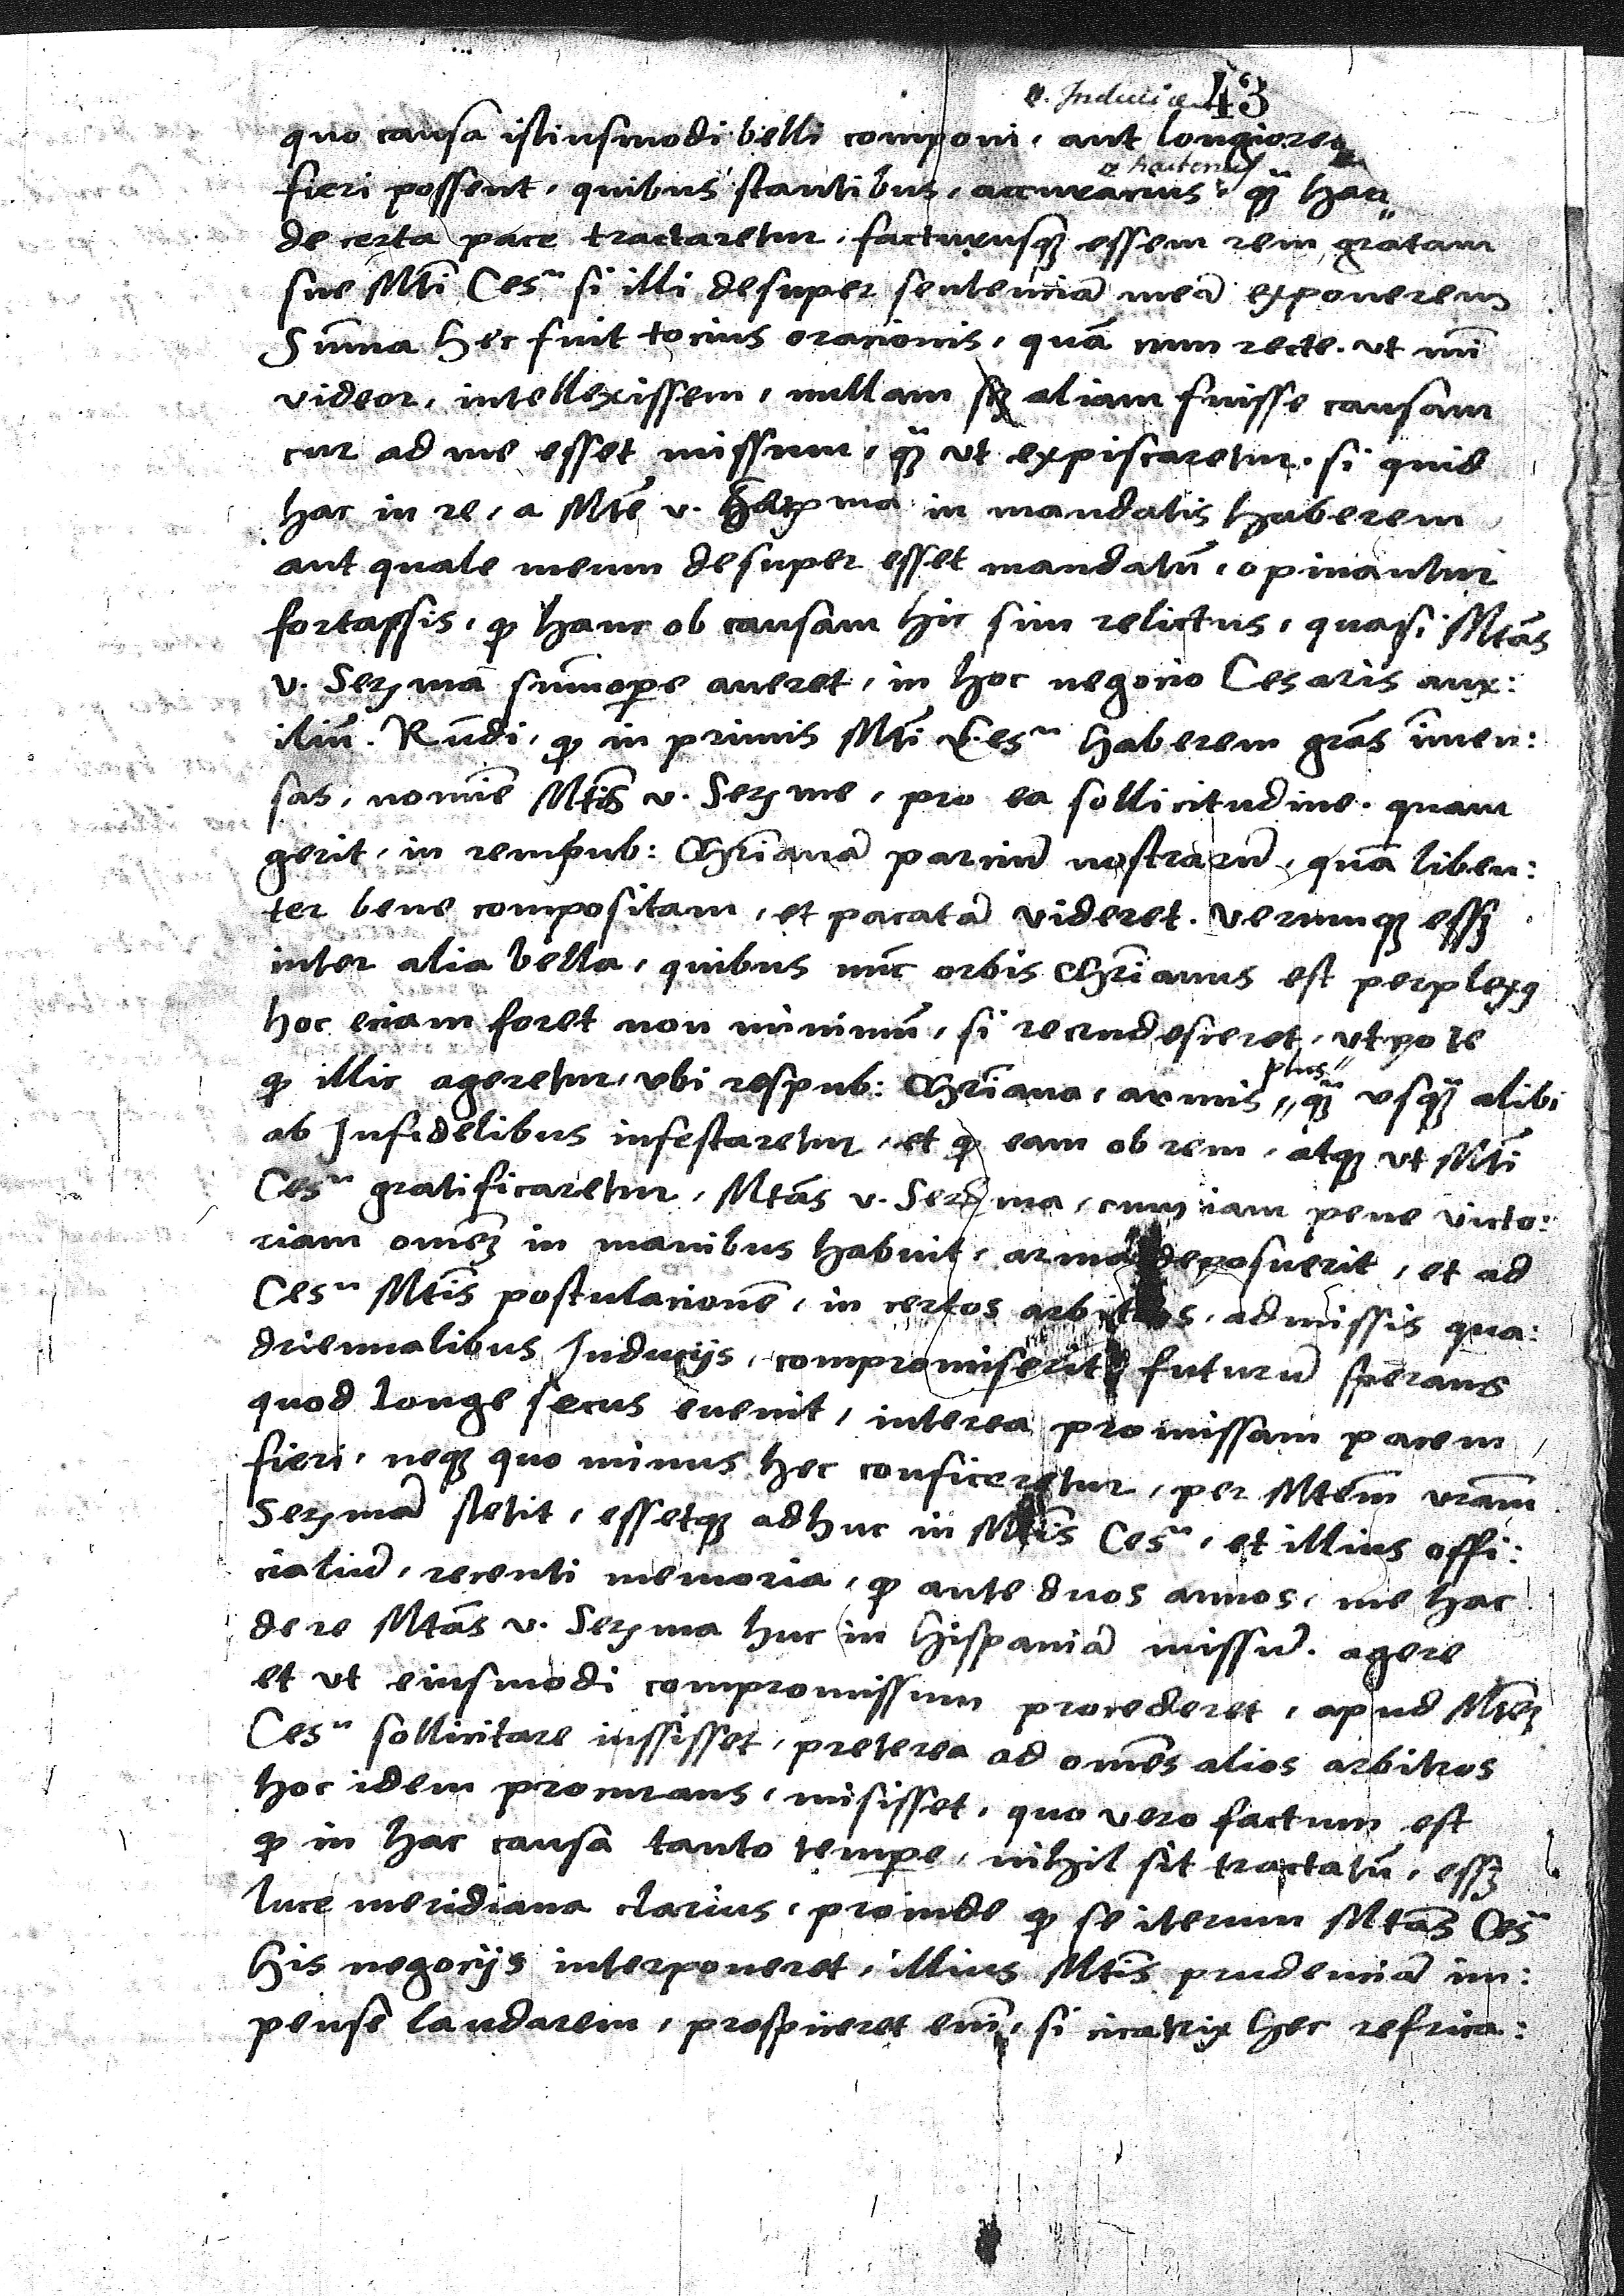 v. Induciae 43
quo causa istiusmodi belli componi, aut longiores
fieri possent, quibus stantibus, accuracius v hactenus qȝ hac
de certa pace tractaretur, facturusqȝ essem rem gratam
sue Mti Ces. si illi desuper sentenciā meā exponerem
Sūma hec fuit tocius oracionis, quā cum recte, ut mi
videor, intellexissem, nullam aliam fuisse causam
cur ad me esset missum, qȝ ut expiscaretur, si quid
hac in re, a Mte v. Serma in mandatis haberem
aut quale meum desuper esset mandatū, opinantur
fortassis, qp hanc ob causam hic sim relictus, quasi Mtas
v. Serma sūmope averet, in hoc negocio Cesaris aux:
iliū. Rūdi, qp in primis Mti Ces. haberem grās īmen:
sas, nomīe Mtis v. Serme, pro ea sollicitudine, quam
gerit, in rempub: Chrīanā parciū nostrarū, quā liben:
ter bene compositam, et pacatā videret. Verumqȝ essȝ
inter alia bella, quibus nūc orbis Chrīanus est perplexꝰ
hoc eciam foret non minimū, si recrudesceret, utpote
qp illic ageretur, ubi respub: Chrīana, armis, plus qȝ usqȝ alibi
ab Infidelibus infestaretur, et qp eam ob rem, atqȝ ut Mti
Ces. gratificaretur, Mtas v. Serma, cum iam pene victo:
riam omēȝ in manibus habuit, arma deposuerit, et ad
Ces. Mtis postulacionē, in certos arbitros, admissis qua:
driennalibus Inducijs, compromiserit, futurū sperans
quod longe secus evenit, interea promissam pacem
fieri, neqȝ quo minus hec conficeretur, per Mtem vrām
Sermā stetit, essetqȝ adhuc in Mtis Ces. et illius offi:
cialiū, recenti memoria, qp ante duos annos, me hac
de re Mtas v. Serma huc in Hispaniā missū, agere
et ut eiusmodi compromissum procederet, apud Mtēȝ
Ces. sollicitare iussisset, preterea ad omēs alios arbitros
hoc idem procurans, misisset, quo vero factum est
qp in hac causa tanto tempe, nihil sit tractatū, essȝ
luce meridiana clarius, proinde qp se iterum Mtas Ces.
his negocijs interponeret, illius Mtis prudenciā im:
pense laudarem, prospiceret enī, si cicatrix hec refrica: